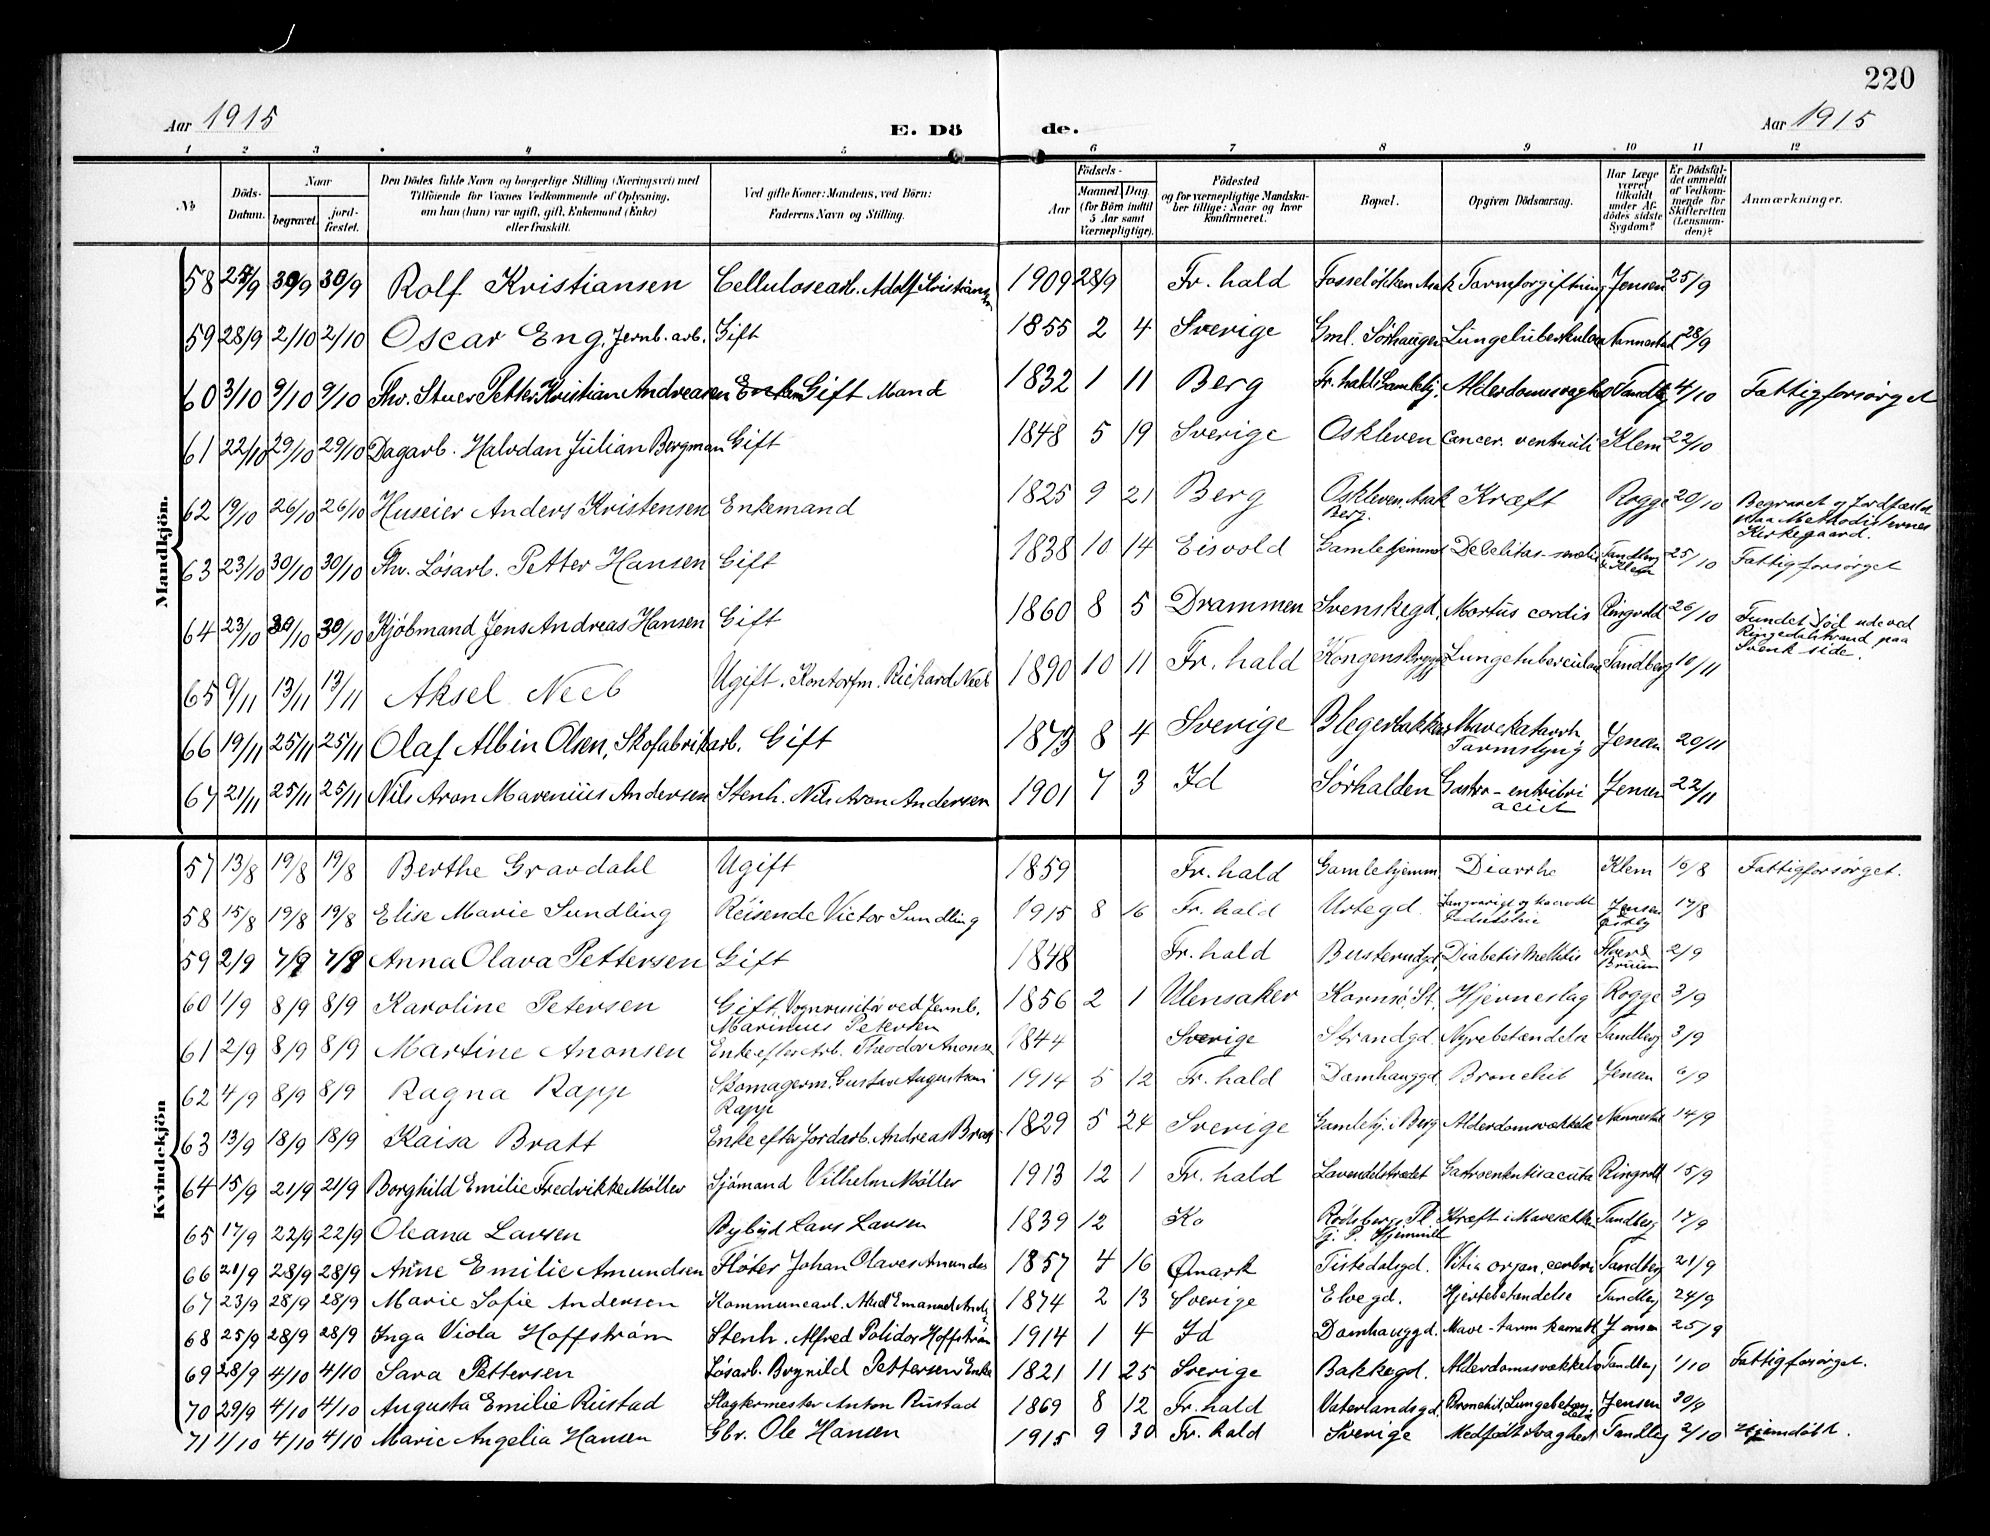 220
Aar 1915
E. Dö
de.
Aar 1915
1 2 3 4 5 6 7 8 9 10 11 12
No Döds-Datum. Naar begravet. jord-fæstet. Den Dödes fulde Navn og borgerlige Stilling (Næringsvei) med Tilföiende for Voxnes Vedkommende af Oplysning, om han (hun) var ugift, gift, Enkemand (Enke) eller fraskilt. Ved gifte Koner: Mandens, ved Börn: Faderens Navn og Stilling. Födsels- Aar Maaned. Dag. (for Börn indtil 5 Aar samt Værnepligtige). Födested og for værnepligtige Mandskaber tillige: Naar og hvor Konfirmeret. Bopæl. Opgiven Dödsaarsag. Har Læge været tilkaldt under Afdödes sidste Sygdom? Er Dödsfaldet anmeldt af Vedkommende for Skifteretten (Lensmanden)? Anmærkninger.
Mandkjön.
58 25/9 30/9 30/9 Rolf Kristiansen Cellulosearb. Adolf Kristiansen 1909 28/9 Fr. hald Fosseløkken Asak Tarmforgiftning Jensen 25/9
59 28/9 2/10 2/10 Oscar Eng, Jernb. arb. Gift 1855 2 4 Sverige Gml. Sørhaugen Lungetuberkulose Nannestad 28/9
60 3/10 9/10 9/10 Fhv. Stuer Petter Kristian Andreasen Gift Mand 1832 1 11 Berg Fr. hald Gamlehj. Alderdomssvaghed Tandbg 4/10 Fattigforsørget
61 22/10 29/10 29/10 Dagarb. Halvdan Julian Bergman Gift 1848 5 19 Sverige Oskleven Cancer ventriculi Klem 22/10
62 19/10 26/10 26/10 Huseier Anders Kristensen Enkemand 1825 9 21 Berg Oskleven Asak Berg. Kræft Rogge 20/10 Begravet og jordfæstet paa Methodisternes Kirkegaard.
63 23/10 30/10 30/10 Fhv. Løsarb. Petter Hansen Gift 1838 10 14 Eisvold Gamlehjemmet Debelitas senilis Tandberg & Klem 25/10 Fattigforsørget
64 23/10 30/10 30/10 Kjøbmand Jens Andreas Hansen Gift 1860 8 5 Drammen Svenskegd. Mortus cordis Ringvold 26/10 Fundet død ude ved Ringedalstrand paa Svensk side.
65 9/11 13/11 13/11 Aksel Neeb Ugift. Kontorfm. Rickard Neeb 1890 10 11 Fr. hald Kongens Brygge Lungetuberculose Tandberg 10/11
66 19/11 25/11 25/11 Olaf Albin Olsen, Skofabrikarb. Gift 1873 8 4 Sverige Blegerbakken Mavekatarrh, Tarmslyng Jensen 20/11
67 21/11 25/11 25/11 Nils Aron Marenius Andersen Stenh. Nils Aron Andersen 1901 7 3 Id Sørhalden Gastro-entritri acut Jensen 22/11
Kvindekjön
57 13/8 19/8 19/8 Berthe Gravdahl Ugift 1859 Fr. hald Gamlehjemm. Diarrhe Klem 16/8 Fattigforsørget.
58 15/8 19/8 19/8 Elise Marie Sundling Reisende Victor Sundling 1915 8 16 Fr. hald Urtegd. Langvarige og haardt Jensen 17/8
59 2/9 7/9 7/8 Anna Olava Pettersen Gift 1848 Fr. hald Busterudgd. Diabetis Mellitis Bruun 2/9
60 1/9 8/9 8/9 Karoline Petersen Gift, Vognvisitør ved Jernb. Marinius Petersen 1856 2 1 Ullensaker Kornsø St. Hjerneslag Rogge 3/9
61 2/9 8/9 8/9 Martine Anonsen Enke efter Arb. Theodor Anonsen 1844 Sverige Strandgd. Nyrebetændelse Tandberg 3/9
62 4/9 8/9 8/9 Ragna Rapp Skomagerm. Gustav Augustini Rapp 1914 5 12 Fr. hald Damhauggd. Bronchit Jensen 6/9
63 13/9 18/9 18/9 Kaisa Bratt Enke efter Jordarb. Andreas Bratt 1829 5 24 Sverige Gamlehj. i Berg Alderdomsvækkelse Nannestad 14/9
64 15/9 21/9 21/9 Borghild Emilie Fredrikke Møller Sjömand Vilhelm Møller 1913 12 1 Fr. hald Lavendelstrædet Gastroenteritis acuta Ringvold 15/9
65 17/9 22/9 22/9 Oleana Larsen Bybud Lars Larsen 1839 12 Ko Rødsberg Pl. Kræft i Mavesækken Tandberg 17/9
66 21/9 28/9 28/9 Anne Emilie Amundsen Fløter Johan Olaves Amundse 1857 4 16 Ømark Tistedalsgd. Vitia organ. cordis Tandberg 21/9
67 23/9 28/9 28/9 Marie Sofie Andersen Kommunearb. Emanuel Ands 1874 2 13 Sverige Elvegd. Hjertebetændelse Tandberg 24/9
68 25/9 28/9 28/9 Inga Viola Hoffstrøm Stenh. Alfred Polidor Hoffstrøm 1914 1 4 Id Damhauggd. Mave-tarm katarrh Jensen 25/9
69 28/9 4/10 4/10 Sara Pettersen Løsarb. Brynild Pettersen Enke 1821 11 25 Sverige Bakkegd. Alderdomssvækkelse Tandberg 1/10 Fattigforsørget.
70 29/9 4/10 4/10 Augusta Emilie Rustad Slagtermester Anton Rustad 1869 8 12 Fr. hald Vaterlandsgd. Bronchit, Lungebetæn. Jensen 30/9
71 1/10 4/10 4/10 Marie Angelia Hansen Gbr. Ole Hansen 1915 9 30 Fr. hald Sverige Medfødt Svaghed Tandbg 2/10 Hjemdøbt.